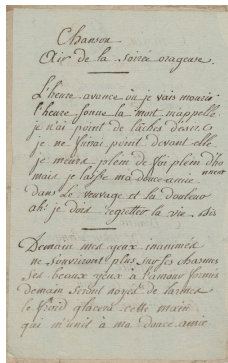 Chanson
Air de la Soirée orageuse
L'heure avance où je vais mourir
l'heure sonne la mort m'appelle
je n'ai point de lâches desirs
je ne fuirai point devant elle
je meurs plein de foi plein d'honneur
mais je laisse ma douce amie
dans le veuvage et la douleur
ah! je dois regretter la vie bis
Demain mes yeux inanimés
ne s'ouvriront plus sur ses charmes
ses beaux yeux à l'amour fermés
demain seront noyés de larmes
le froid glacera cette main
qui m'unit à ma douce amie